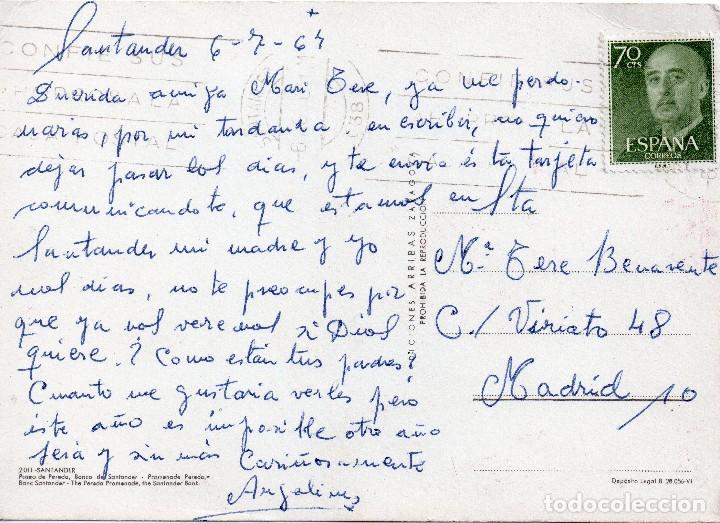 Santander 6-7-64
Querida amiga Mari Tere, ya me perdo-
narias, por mi tardanda en escribir, no quiero
dejar pasar los dias, y te envio ésta tarjeta
comunicandote, que estamos en
Santander mi madre y yo
unos dias, no te preocupes por
que ya nos veremos si Dios
quiere. ? Como están tus padres?
Cuanto me gustaria verles pero
éste año es imposible otro año
será y sin más Cariñosamente
Angelines
Sta
Mª Tere Benavente
C./ Viriato 48
Madrid 10
70 CTS
ESPAÑA
CORREOS
CONFIE SUS
EDICIONES ARRIBAS ZARAGOZA
PROHIBIDA LA REPRODUCCION
2011-SANTANDER
Paseo de Pereda, Banco de Santander - Promenade Pereda,
Banc Santander - The Pereda Promenade, the Santander Bank.
Depósito Legal B. 28.056-VI
todocoleccion